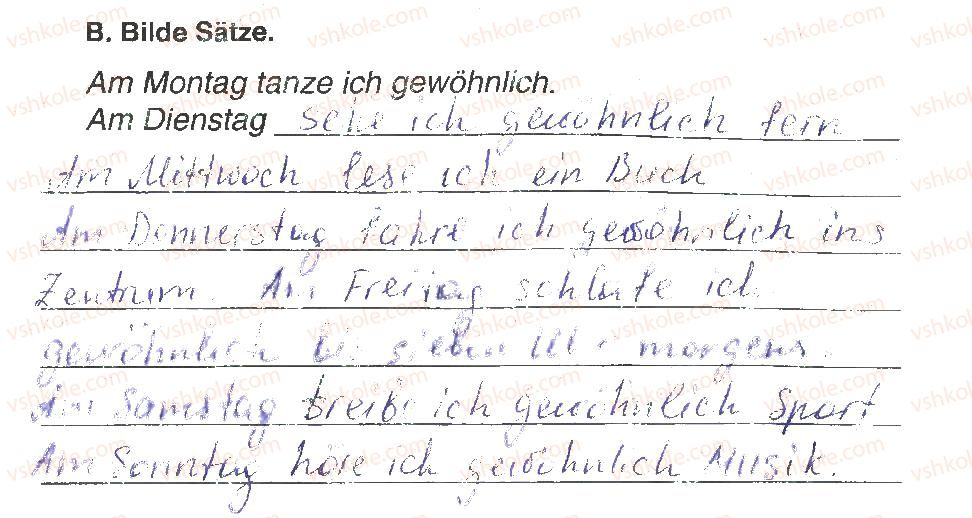 B. Bilde Sätze.
Am Montag tanze ich gewöhnlich.
Am Dienstag sehe ich gewöhnlich fern
Am Mittwoch lese ich ein Buch
Am Donnerstag fahre ich gewöhnlich ins
Zentrum. Am Freitag schlafe ich
gewöhnlich bis sieben Uhr morgens.
Am Samstag treibe ich gewöhnlich Sport
Am Sonntag höre ich gewöhnlich Musik.